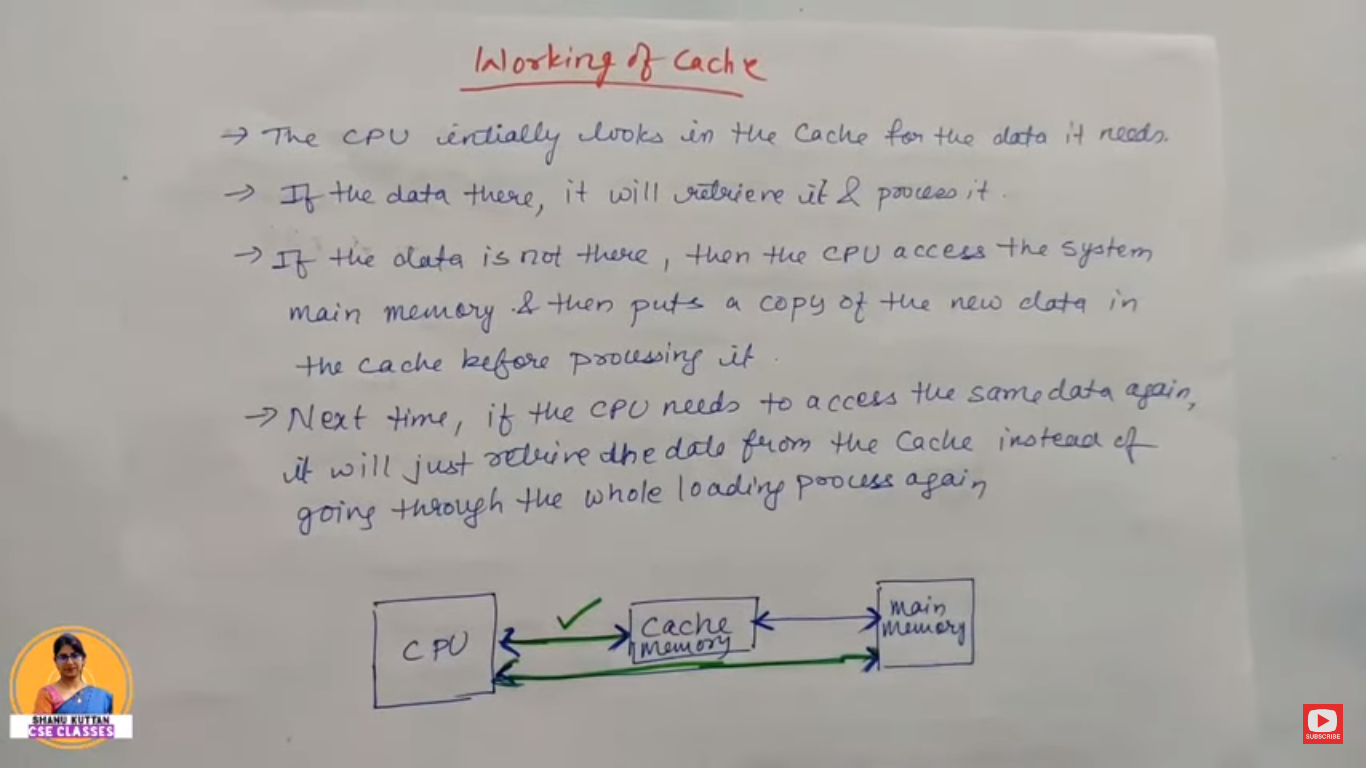 Working of Cache
→ The CPU intially looks in the Cache for the data it needs.
→ If the data there, it will retrieve it & process it.
→ If the data is not there, then the CPU access the system
main memory & then puts a copy of the new data in
the cache before processing it.
→ Next time, if the CPU needs to access the same data again,
it will just retrive the data from the Cache instead of
going through the whole loading process again
CPU
Cache
memory
main
memory
SHANU KUTTAN
CSE CLASSES
SUBSCRIBE